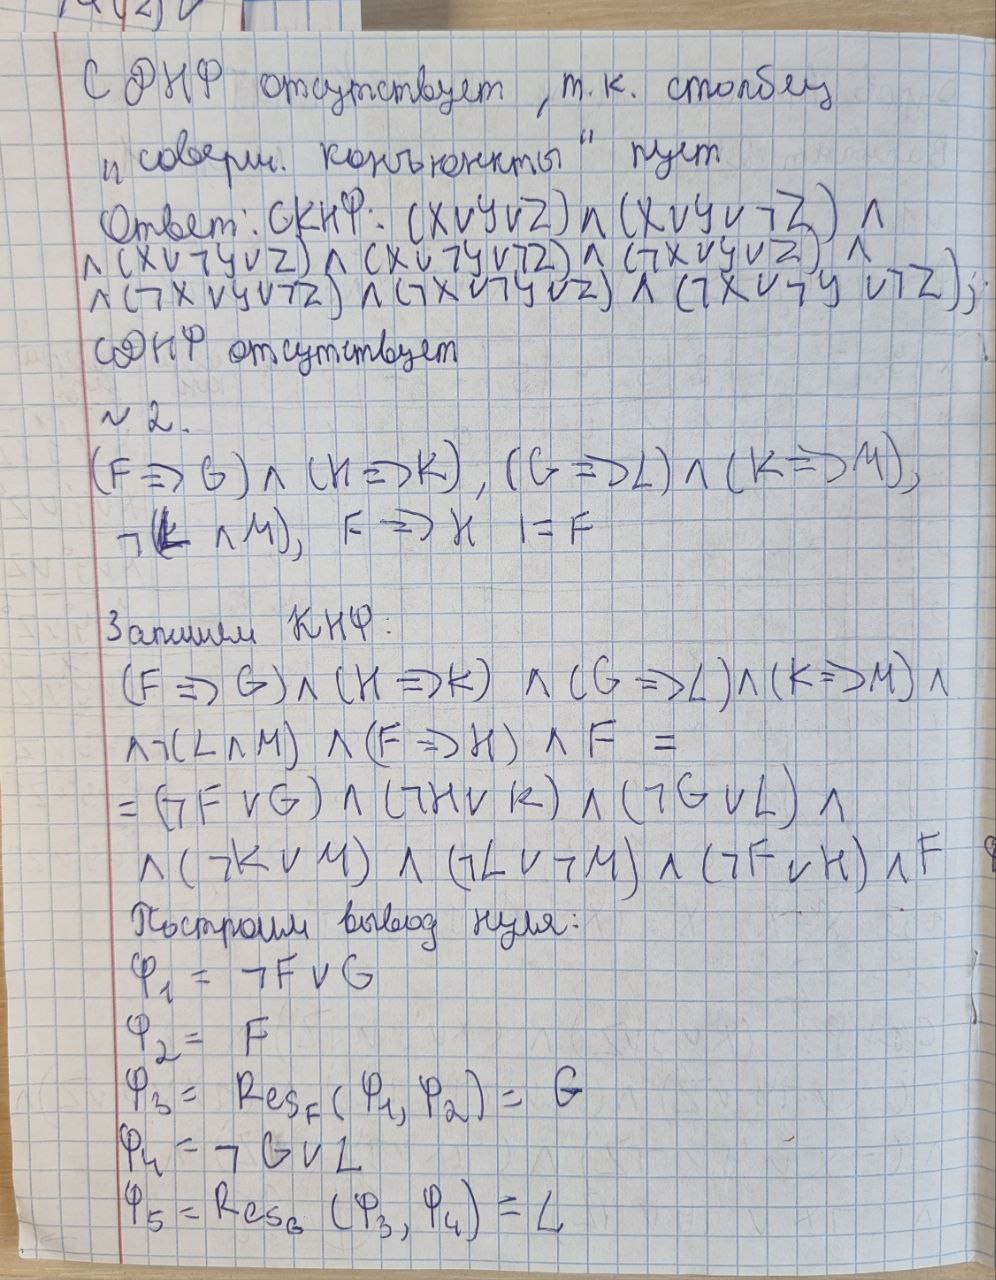 СДНФ отсутствует, т.к. столбец
"соверш. конъюнкты" пуст
Ответ: СКНФ: (X∨Y∨Z)∧(X∨Y∨¬Z) ∧
∧(X∨¬Y∨Z)∧(X∨¬Y∨¬Z)∧(¬X∨Y∨Z) ∧
∧(¬X∨Y∨¬Z)∧(¬X∨¬Y∨Z)∧(¬X∨¬Y∨¬Z);
СДНФ отсутствует
№2.
(F=>G)∧(H=>K), (G=>L)∧(K=>M),
¬(L∧M), F=>H |= F
Запишем КНФ:
(F=>G)∧(H=>K) ∧(G=>L)∧(K=>M)∧
∧¬(L∧M) ∧(F=>H) ∧ F =
=(¬F∨G) ∧ (¬H∨K) ∧ (¬G∨L) ∧
∧(¬K∨M) ∧ (¬L∨¬M) ∧ (¬F∨H) ∧ F
Построим вывод нуля:
φ₁ = ¬F∨G
φ₂ = F
φ₃ = Res_F (φ₁, φ₂) = G
φ₄ = ¬G∨L
φ₅ = Res_G (φ₃, φ₄) = L